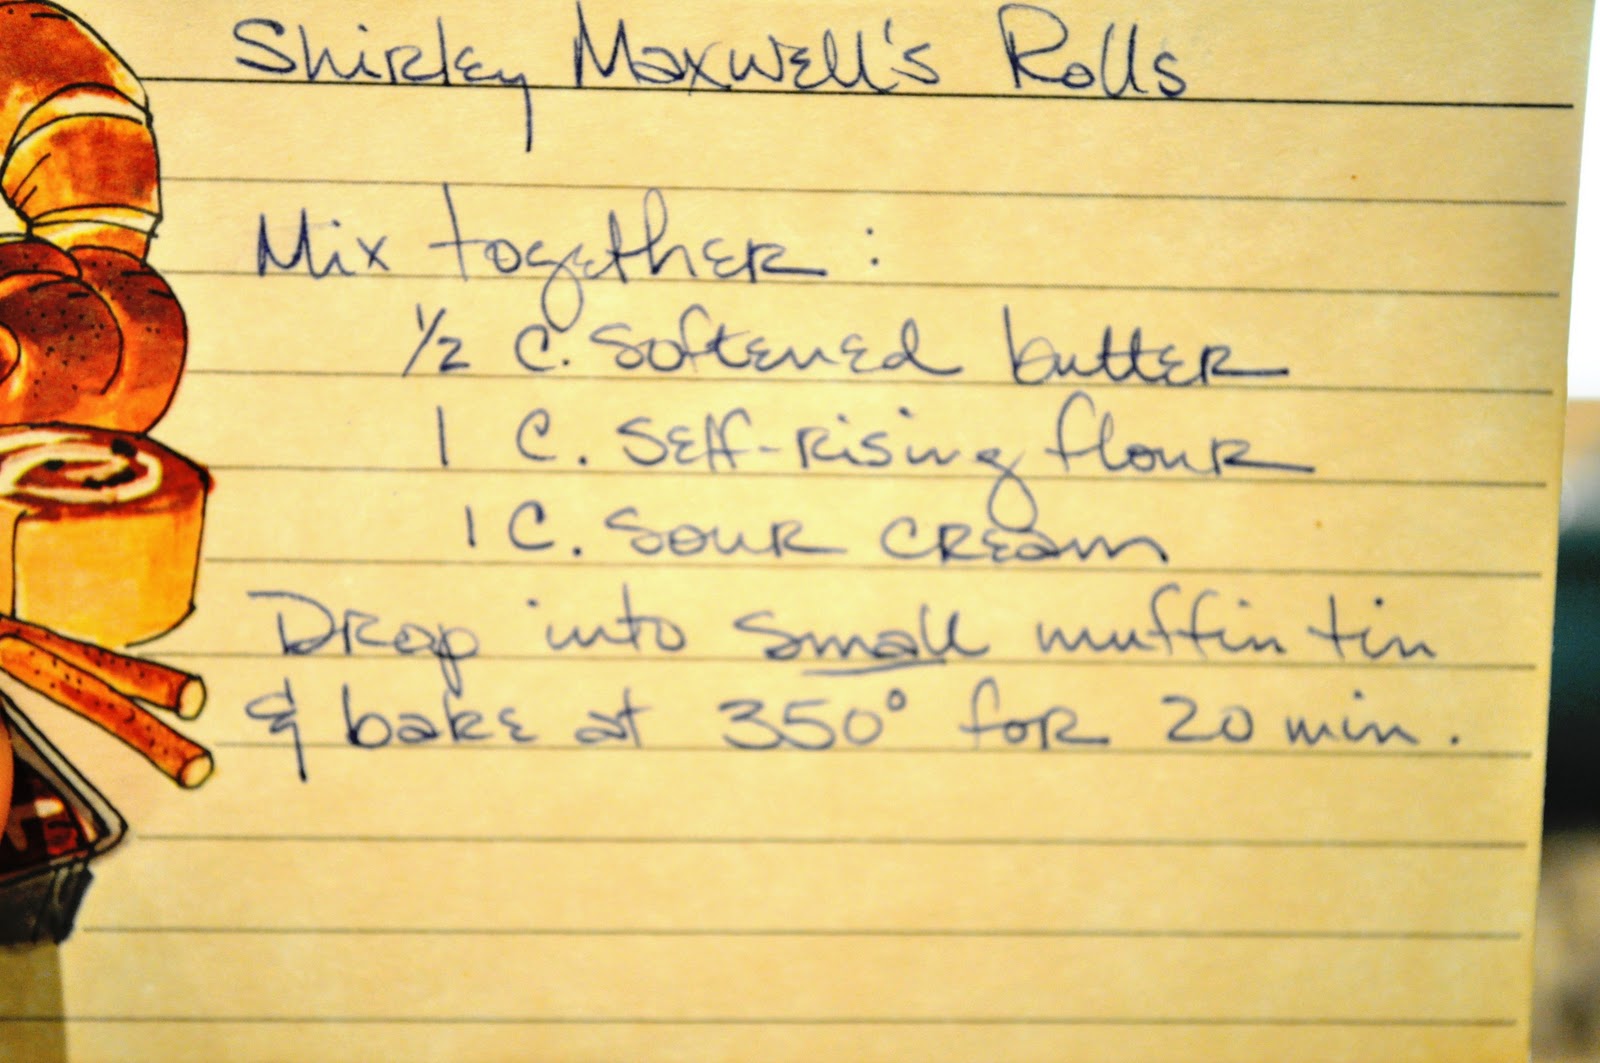 Shirley Maxwell's Rolls
Mix together :
1/2 C. Softened butter
1 C. Self-Rising flour
1 C. Sour cream
Drop into small muffin tin
& bake at 350° for 20 min.